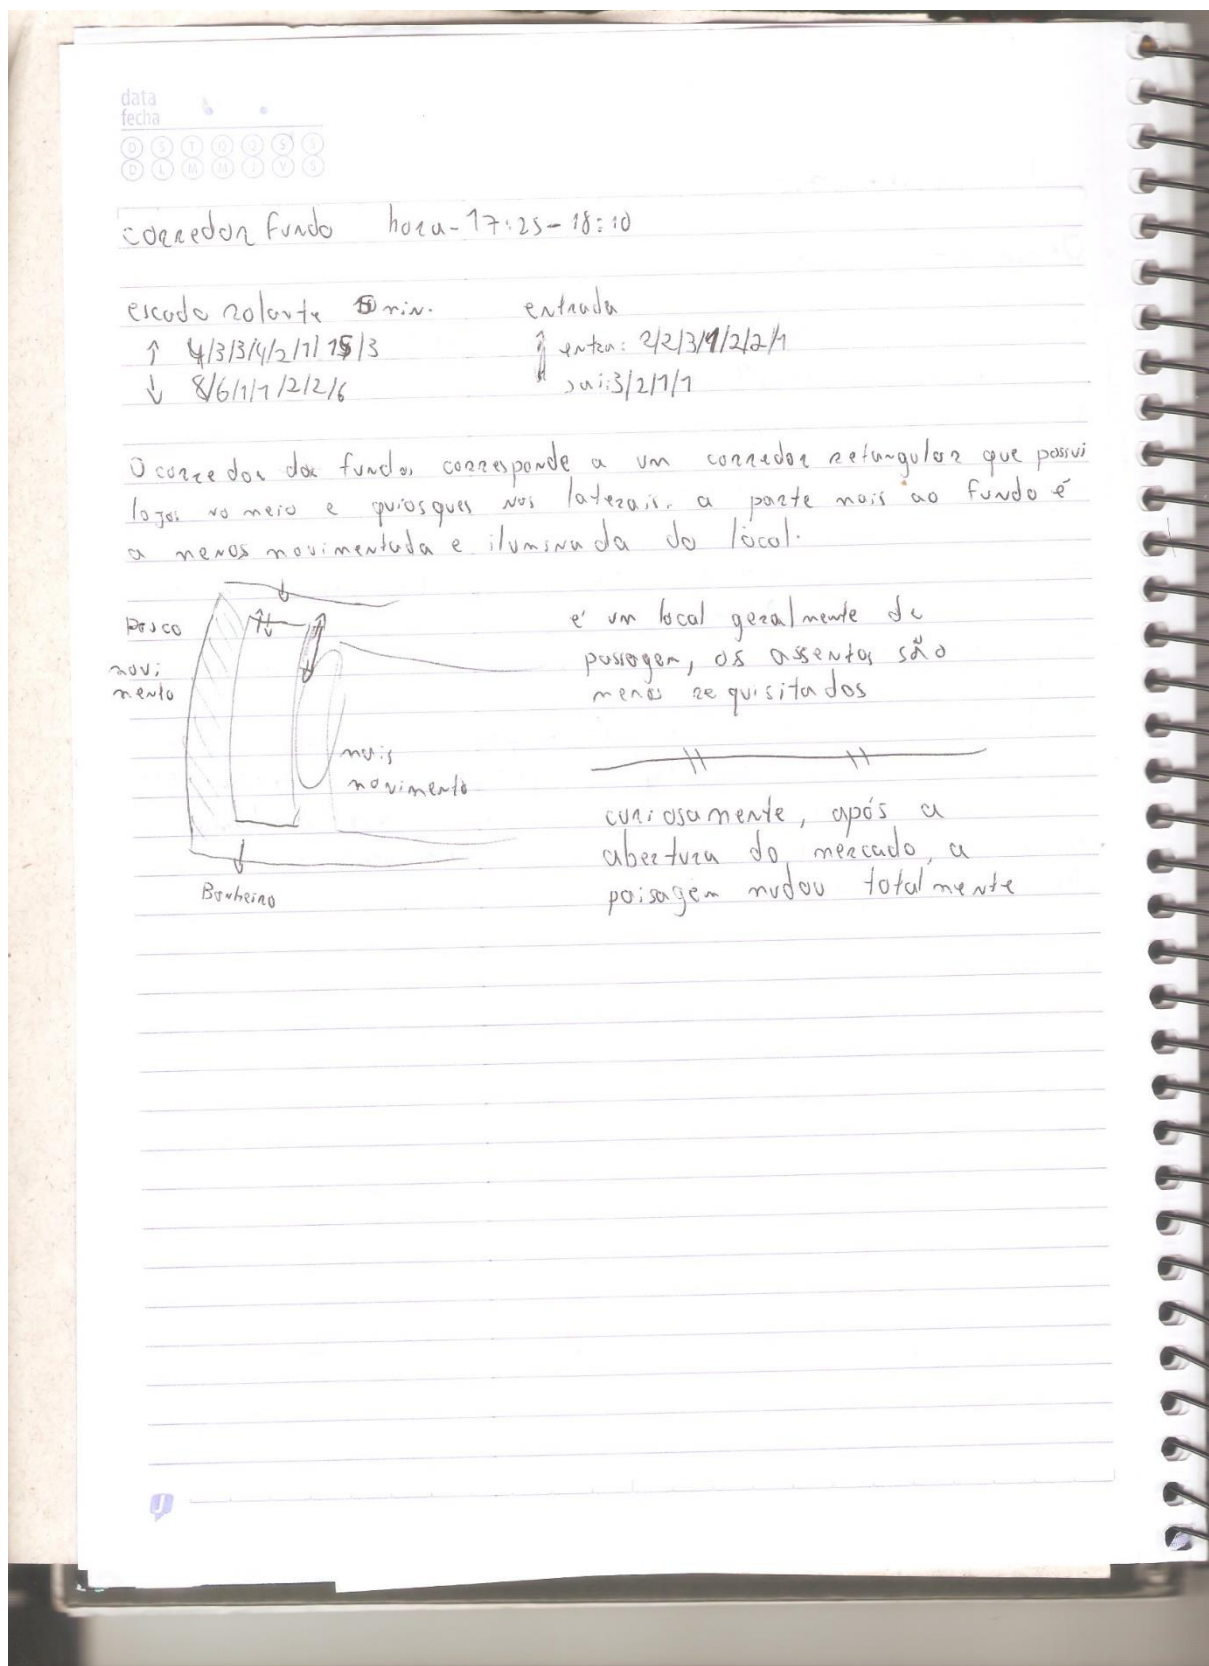 data
fecha
D S T Q Q S S
D L M M J V S
corredor fundo hora - 17:25 - 18:10
escada rolante min. entrada
↑ 4/3/3/4/2/1/ /3 ↑ entra: 2/2/3/ /2/2/1
↓ 8/6/1/1/2/2/6 sai: 3/2/1/1
O corredor dos fundos corresponde a um corredor retangular que possui
lojas no meio e quiosques nas laterais. a parte mais ao fundo é
a menos movimentada e iluminada do local.
pouco
movi
mento
mais
movimento
Banheiro
é um local geralmente de
passagem, os assentos são
menos requisitados
curiosamente, após a
abertura do mercado, a
paisagem mudou totalmente
J